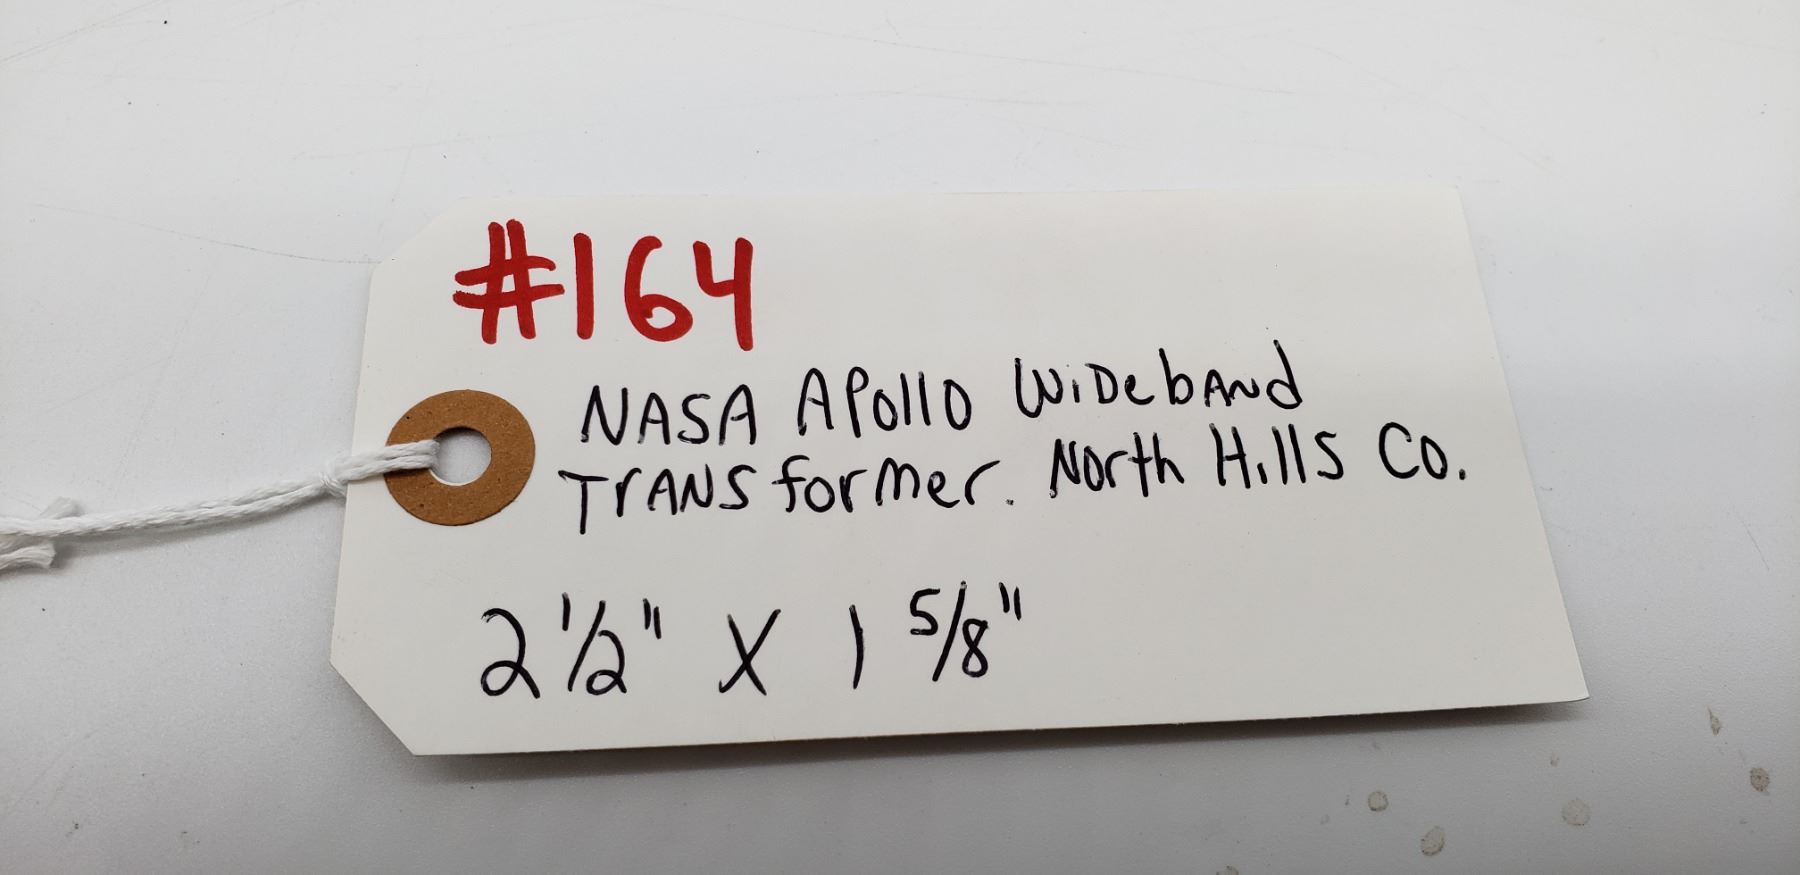 #164
NASA APollo WiDebANd
TrANSformer. North Hills Co.
2 1/2" X 1 5/8"